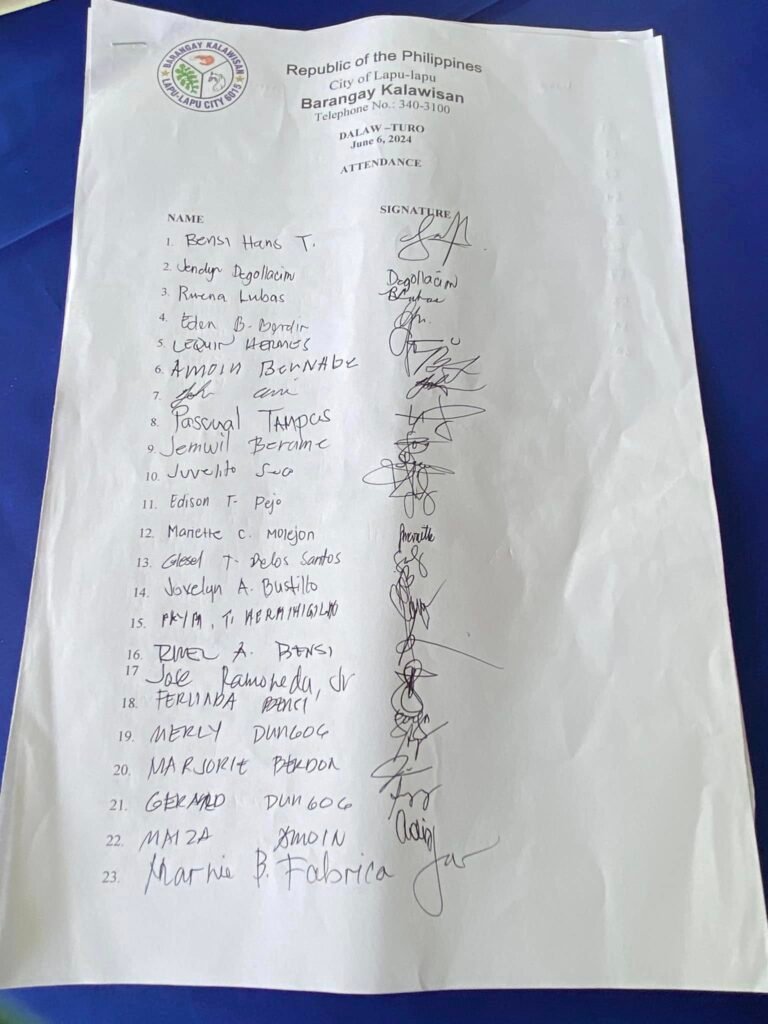 BARANGAY KALAWISAN
LAPU-LAPU CITY 6015
Republic of the Philippines
City of Lapu-lapu
Barangay Kalawisan
Telephone No.: 340-3100
DALAW –TURO
June 6, 2024
ATTENDANCE
NAME SIGNATURE
1. Bensi Hans T.
2. Jendyn Degollacion Degollacion
3. Rwena Lubas
4. Eden B. Berdin
5. LEQUIN HERMES
6. AMOIN BERNABE
7.
8. Pascual TAMPUS
9. Jemwil Berame
10. Juvelito
11. Edison T. Pejo
12. Manette C. Molejon
13. Glesel T. Delos Santos
14. Jovelyn A. Bustillo
15. T.
16. RUEL A. BENSI
17 Jose Ramoneda, Jr
18. FERLINDA BENSI
19. MERLY DUNGOG
20. MARJORIE BERDON
21. GERARD DUNGOG
22. MAIZA AMOIN
23. Marnie B. Fabrica